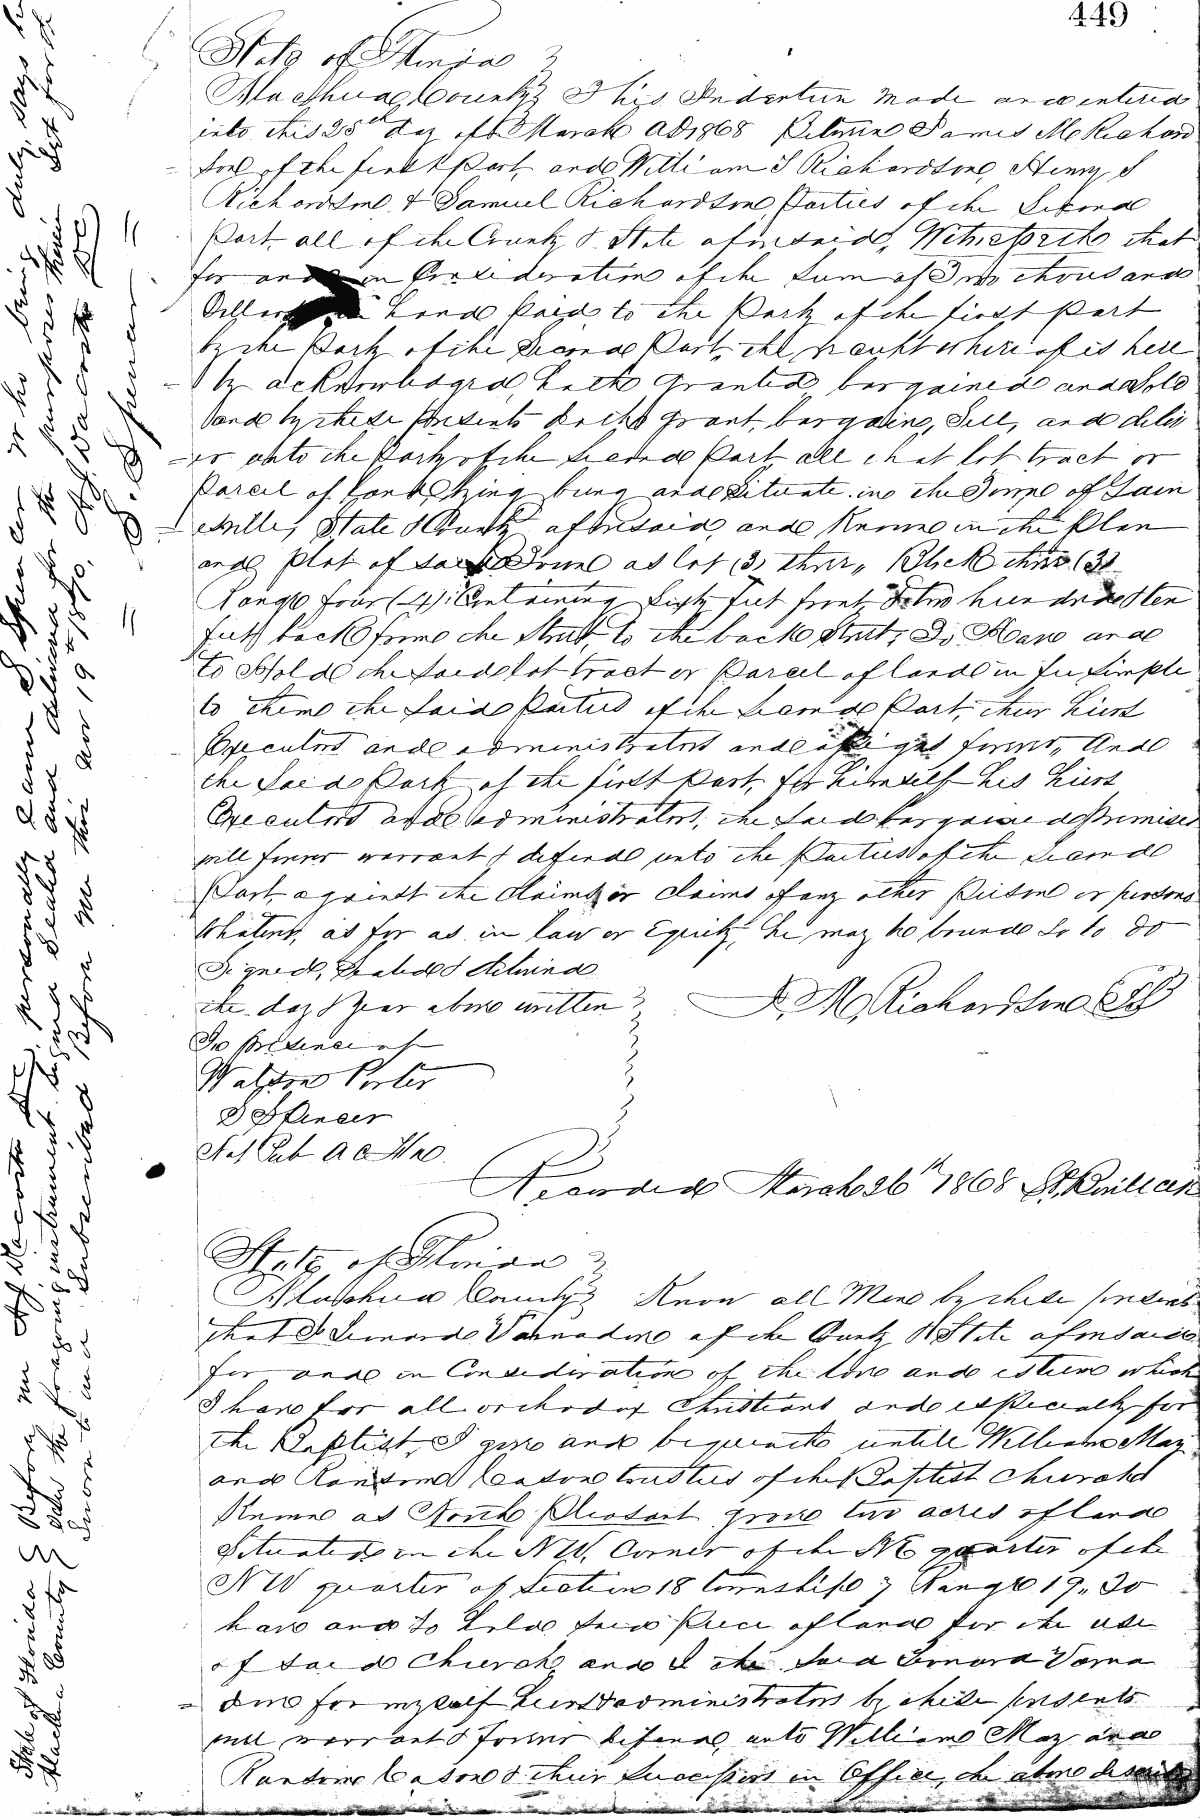 449
State of Florida }
Alachua County } This Indenture made and entered
into this 25th day of March AD 1868 Between James M Richard
son of the first Part, and William S Richardson, Henry S
Richardson & Samuel Richardson, Parties of the Second
Part, all of the County & State aforesaid, Witnesseth that
for and in Consideration of the Sum of Two thousand
Dollars in hand Paid to the Party of the first Part
by the Party of the Second Part, the receipt where of is here
by acknowledged, hath granted, bargained and Sold
and by these Presents doth grant, bargain, Sell, and deliv
er unto the Party of the Second Part all that lot tract or
Parcel of land, lying being and Situate in the Town of Gain
esville, State & County aforesaid, and Known in the Plan
and Plot of said Town as lot (3) three, Block three (3)
Range four (4), Containing Sixty feet front, & two hundred & ten
feet back from the Street, to the back Street, To Have and
to Hold the Said lot tract or Parcel of land in fee Simple
to them the Said Parties of the Second Part, their heirs
Executors and administrators and assigns forever, And
the Said Party of the first Part, for himself his heirs
Executors and administrators, the Said bargained Premises
will forever warrant & defend unto the Parties of the Second
Part, against the claims or claims of any other Person or persons
Whatever, as far as in law or Equity, he may be bound So to do
Signed, Sealed & delivered
the day & Year above written }
J. M. Richardson
In presence of
Watson Porter
S Spencer
Not Pub A C Fla
Recorded March 26th 1868
State of Florida }
Alachua County } Know all Men by these presents
that I Leonard Varnadine of the County & State aforesaid
for and in Consideration of the love and esteem which
I have for all orthodox Christians and especially for
the Baptist, I give and bequeath untill William May
and Ransom Cason trusties of the Baptist Church
Known as North Pleasant grove two acres of land
Situated in the NW, Corner of the NE quarter of the
NW quarter of Section 18 township 7 Range 19. To
have and to hold Said Piece of land for the use
of Said Church, and I the Said Leonard Varna
dine for myself heirs & administrators by these presents
will warrant & forever defend, unto William May and
Ransom Cason & their Successors in Office, the above describ
State of Florida }
Alachua County } Before me A J Dacosta DC, personally came S Spencer who being duly, says he
saw the foregoing instrument signed Sealed and delivered for the purposes therein Set forth
Sworn to and Subscribed Before me this Nov 19th 1870, A. J. Dacosta DC
= S. Spencer =